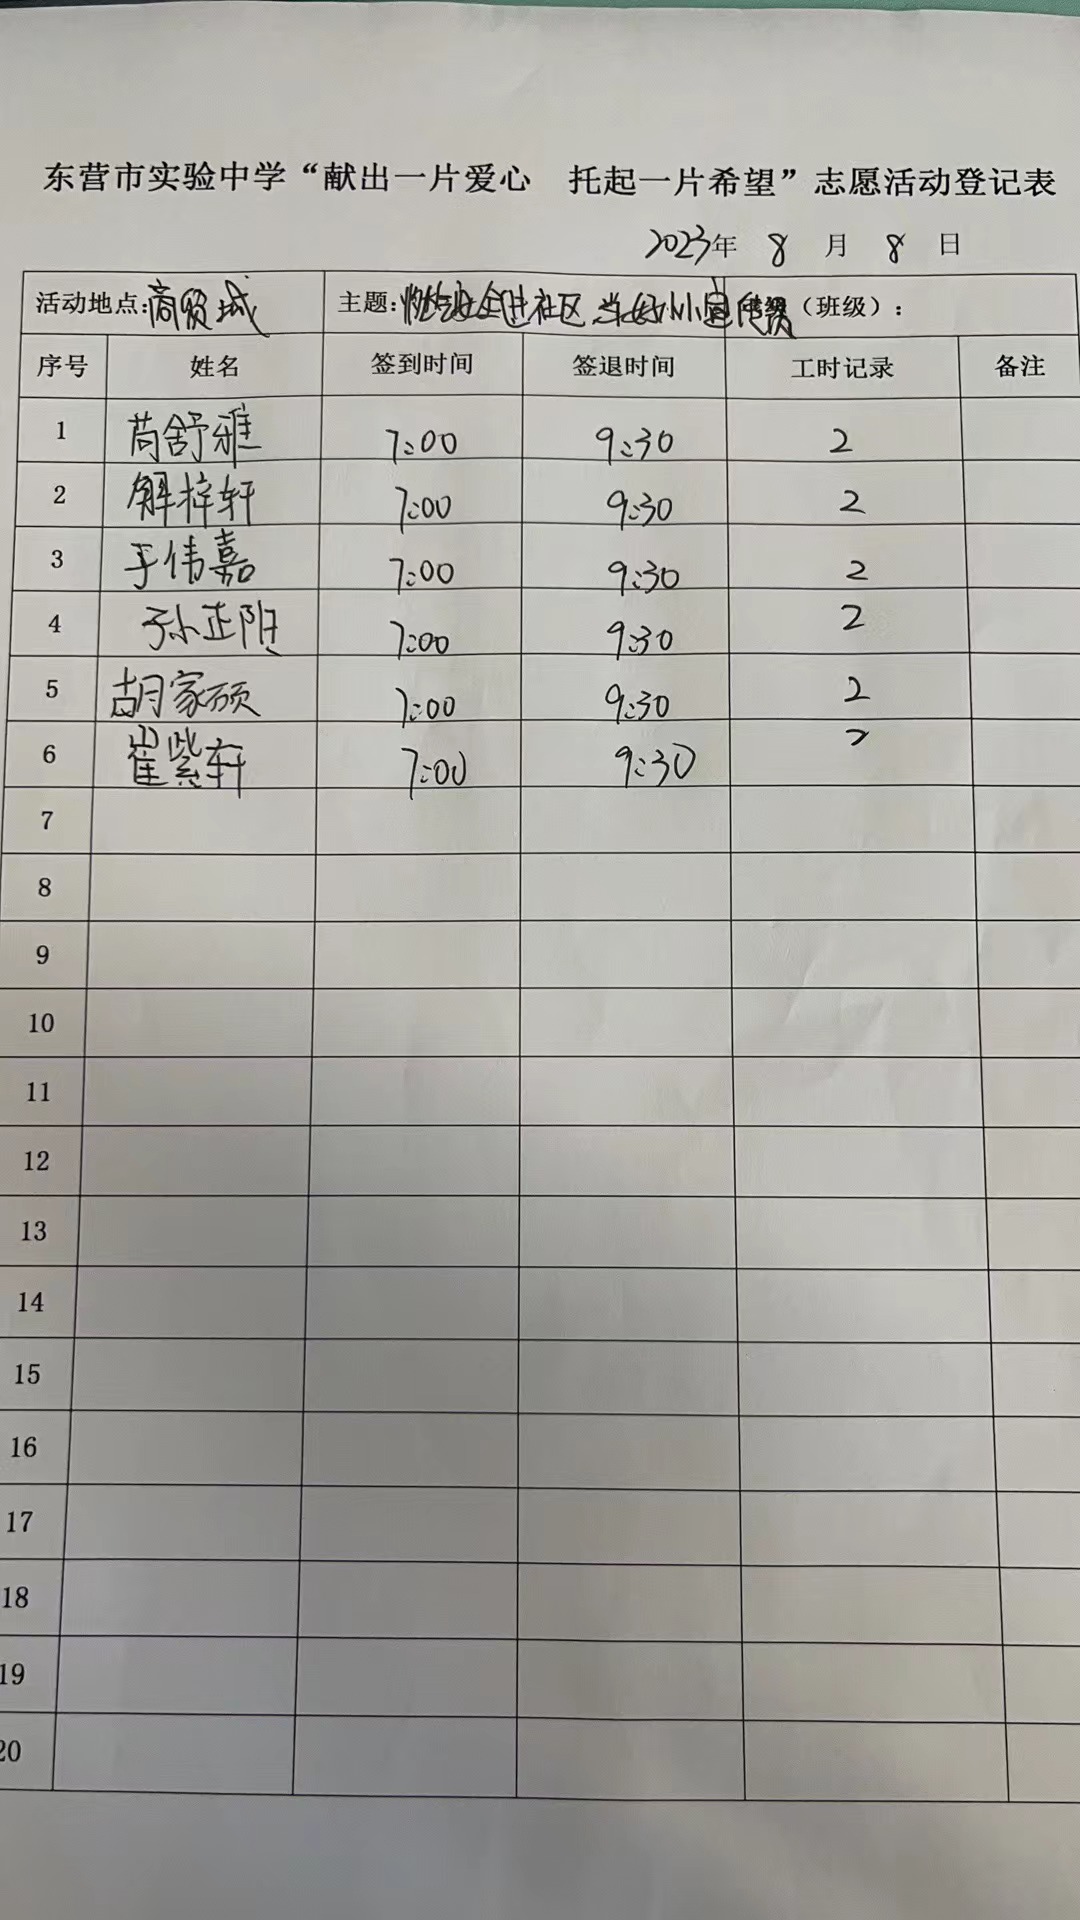 东营市实验中学“献出一片爱心 托起一片希望”志愿活动登记表
2023年 8 月 8 日
活动地点:商贸城 主题:燃气安全进社区 当好小宣传员 (班级):
序号 姓名 签到时间 签退时间 工时记录 备注
1 苘舒雅 7:00 9:30 2
2 解梓轩 7:00 9:30 2
3 于伟嘉 7:00 9:30 2
4 孙正阳 7:00 9:30 2
5 胡家硕 7:00 9:30 2
6 崔紫轩 7:00 9:30 2
7
8
9
10
11
12
13
14
15
16
17
18
19
20